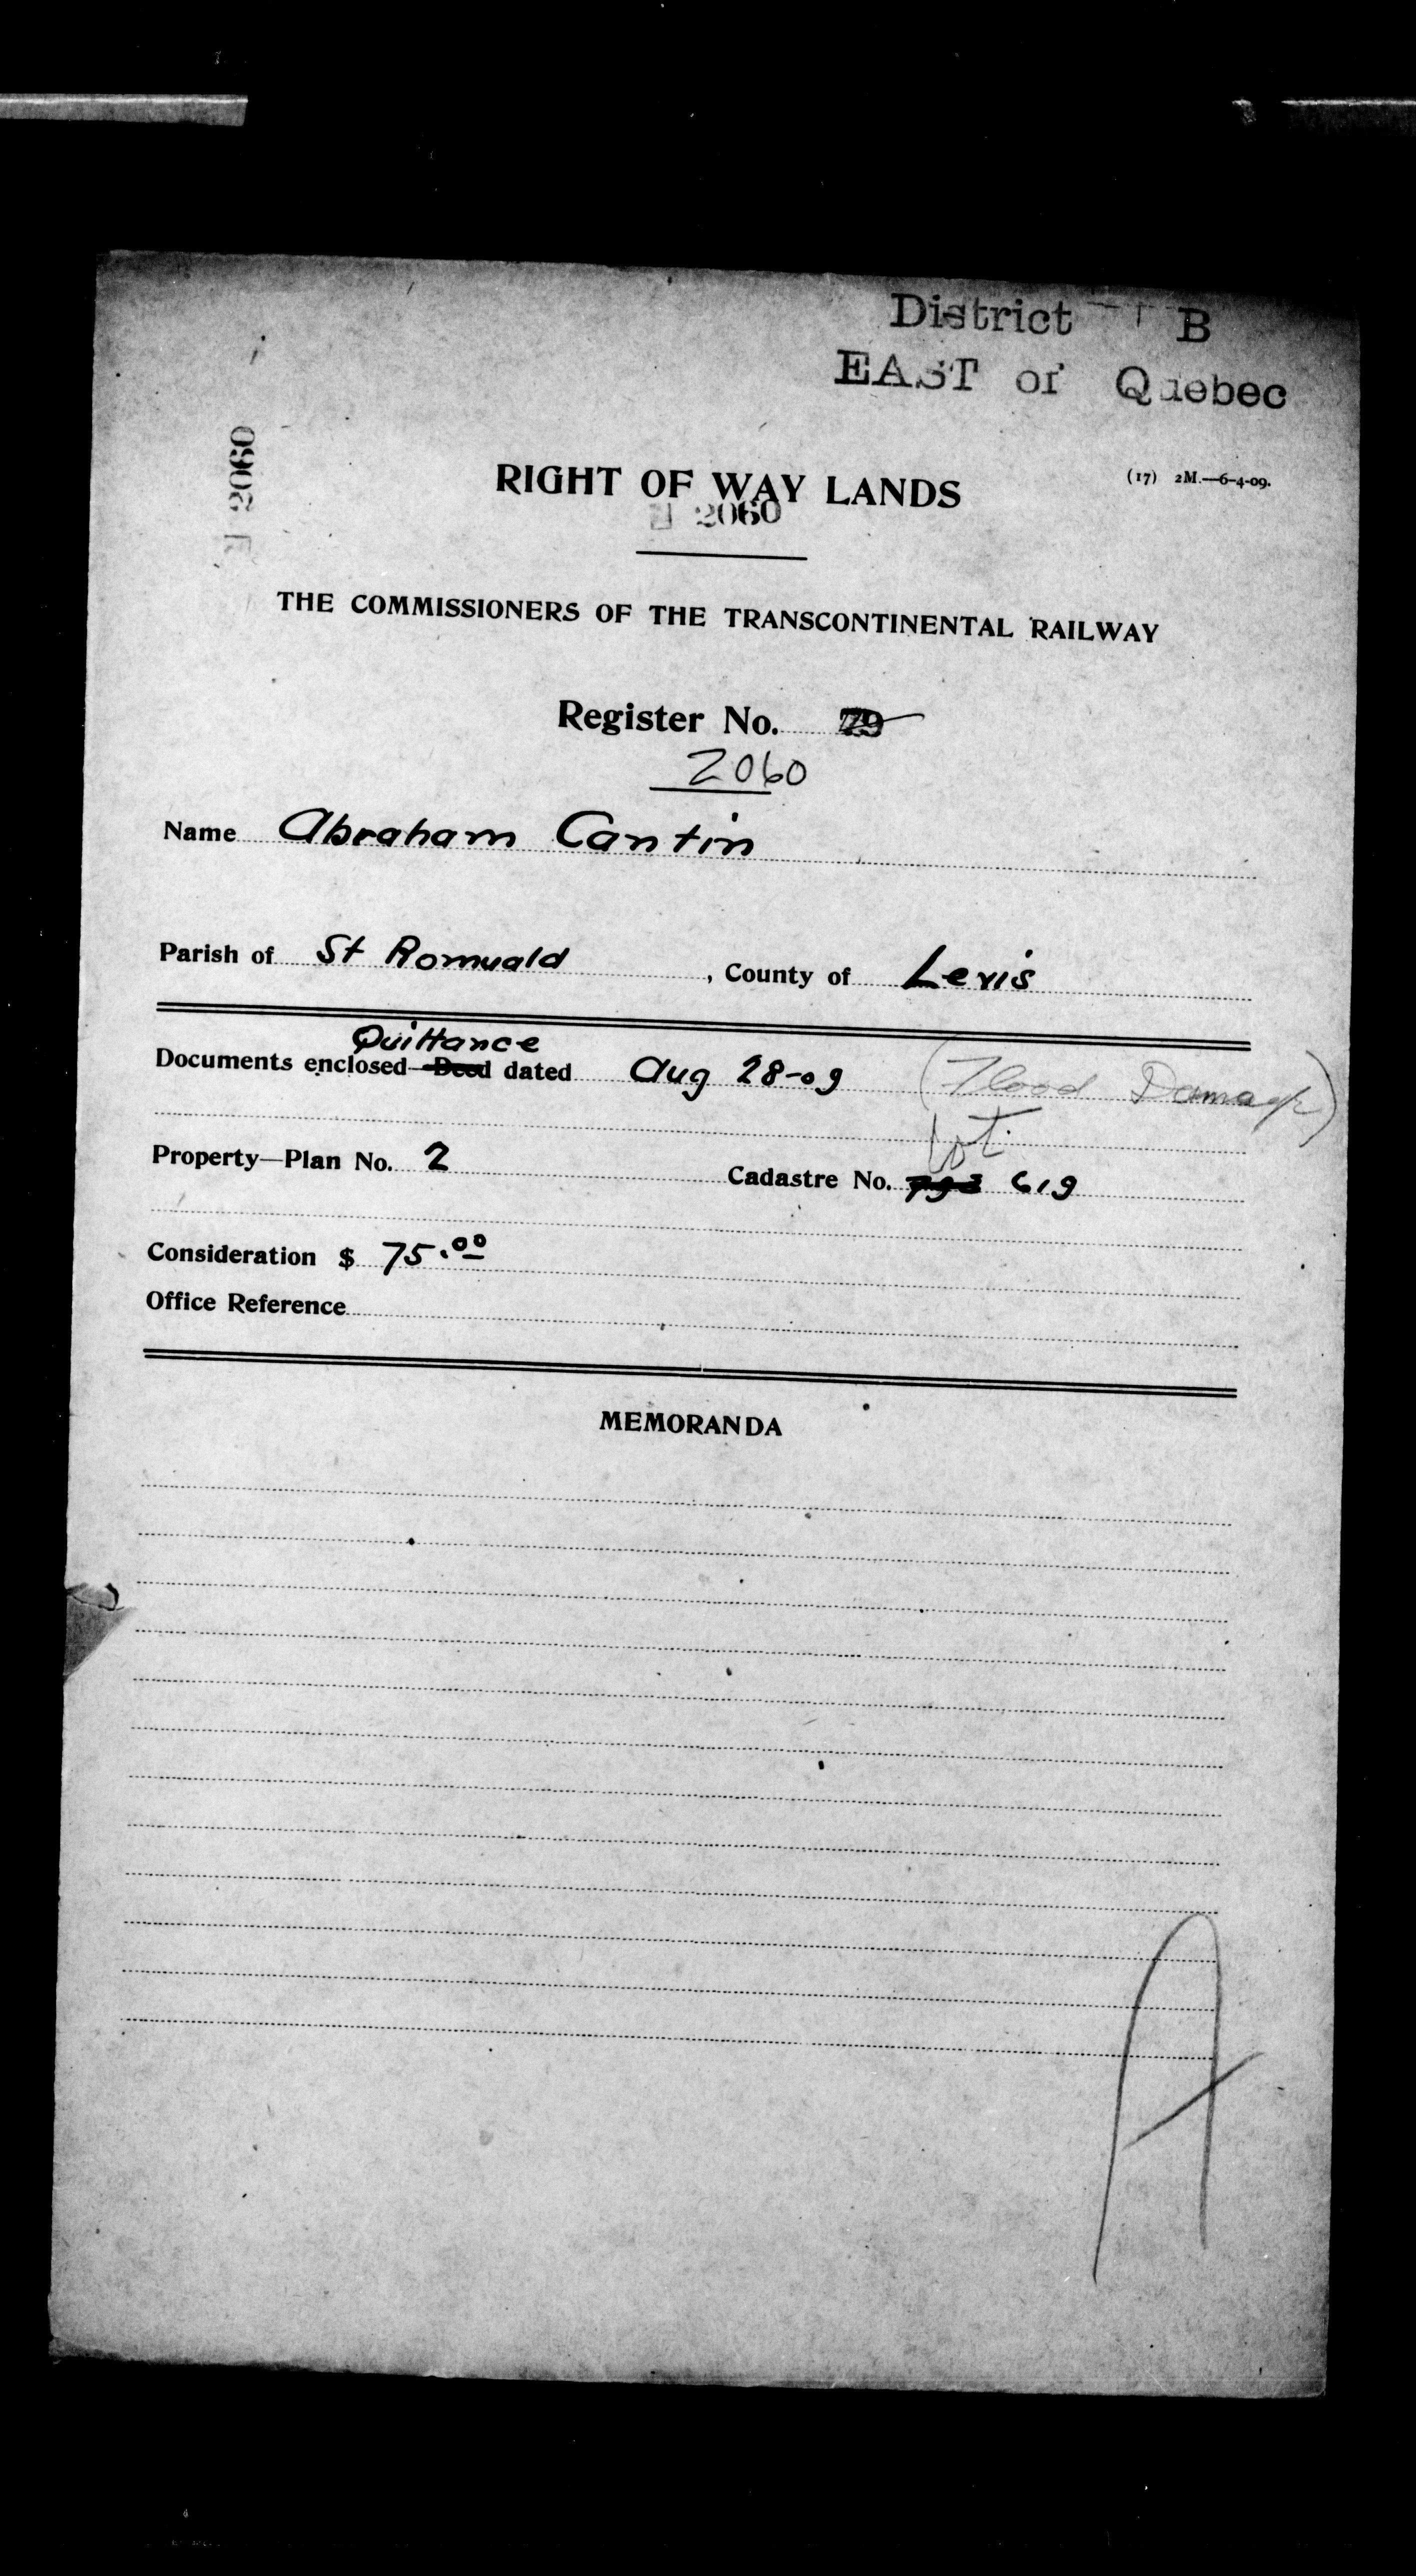 District B
EAST of Quebec
2060
RIGHT OF WAY LANDS
(17) 2M.—6-4-09.
2060
THE COMMISSIONERS OF THE TRANSCONTINENTAL RAILWAY
Register No. 79
2060
Name Abraham Cantin
Parish of St Romuald , County of Levis
Quittance
Documents enclosed—Deed dated Aug 28-09 (Flood Damage)
Lot
Property—Plan No. 2 Cadastre No. 793 619
Consideration $ 75.00
Office Reference
MEMORANDA
A